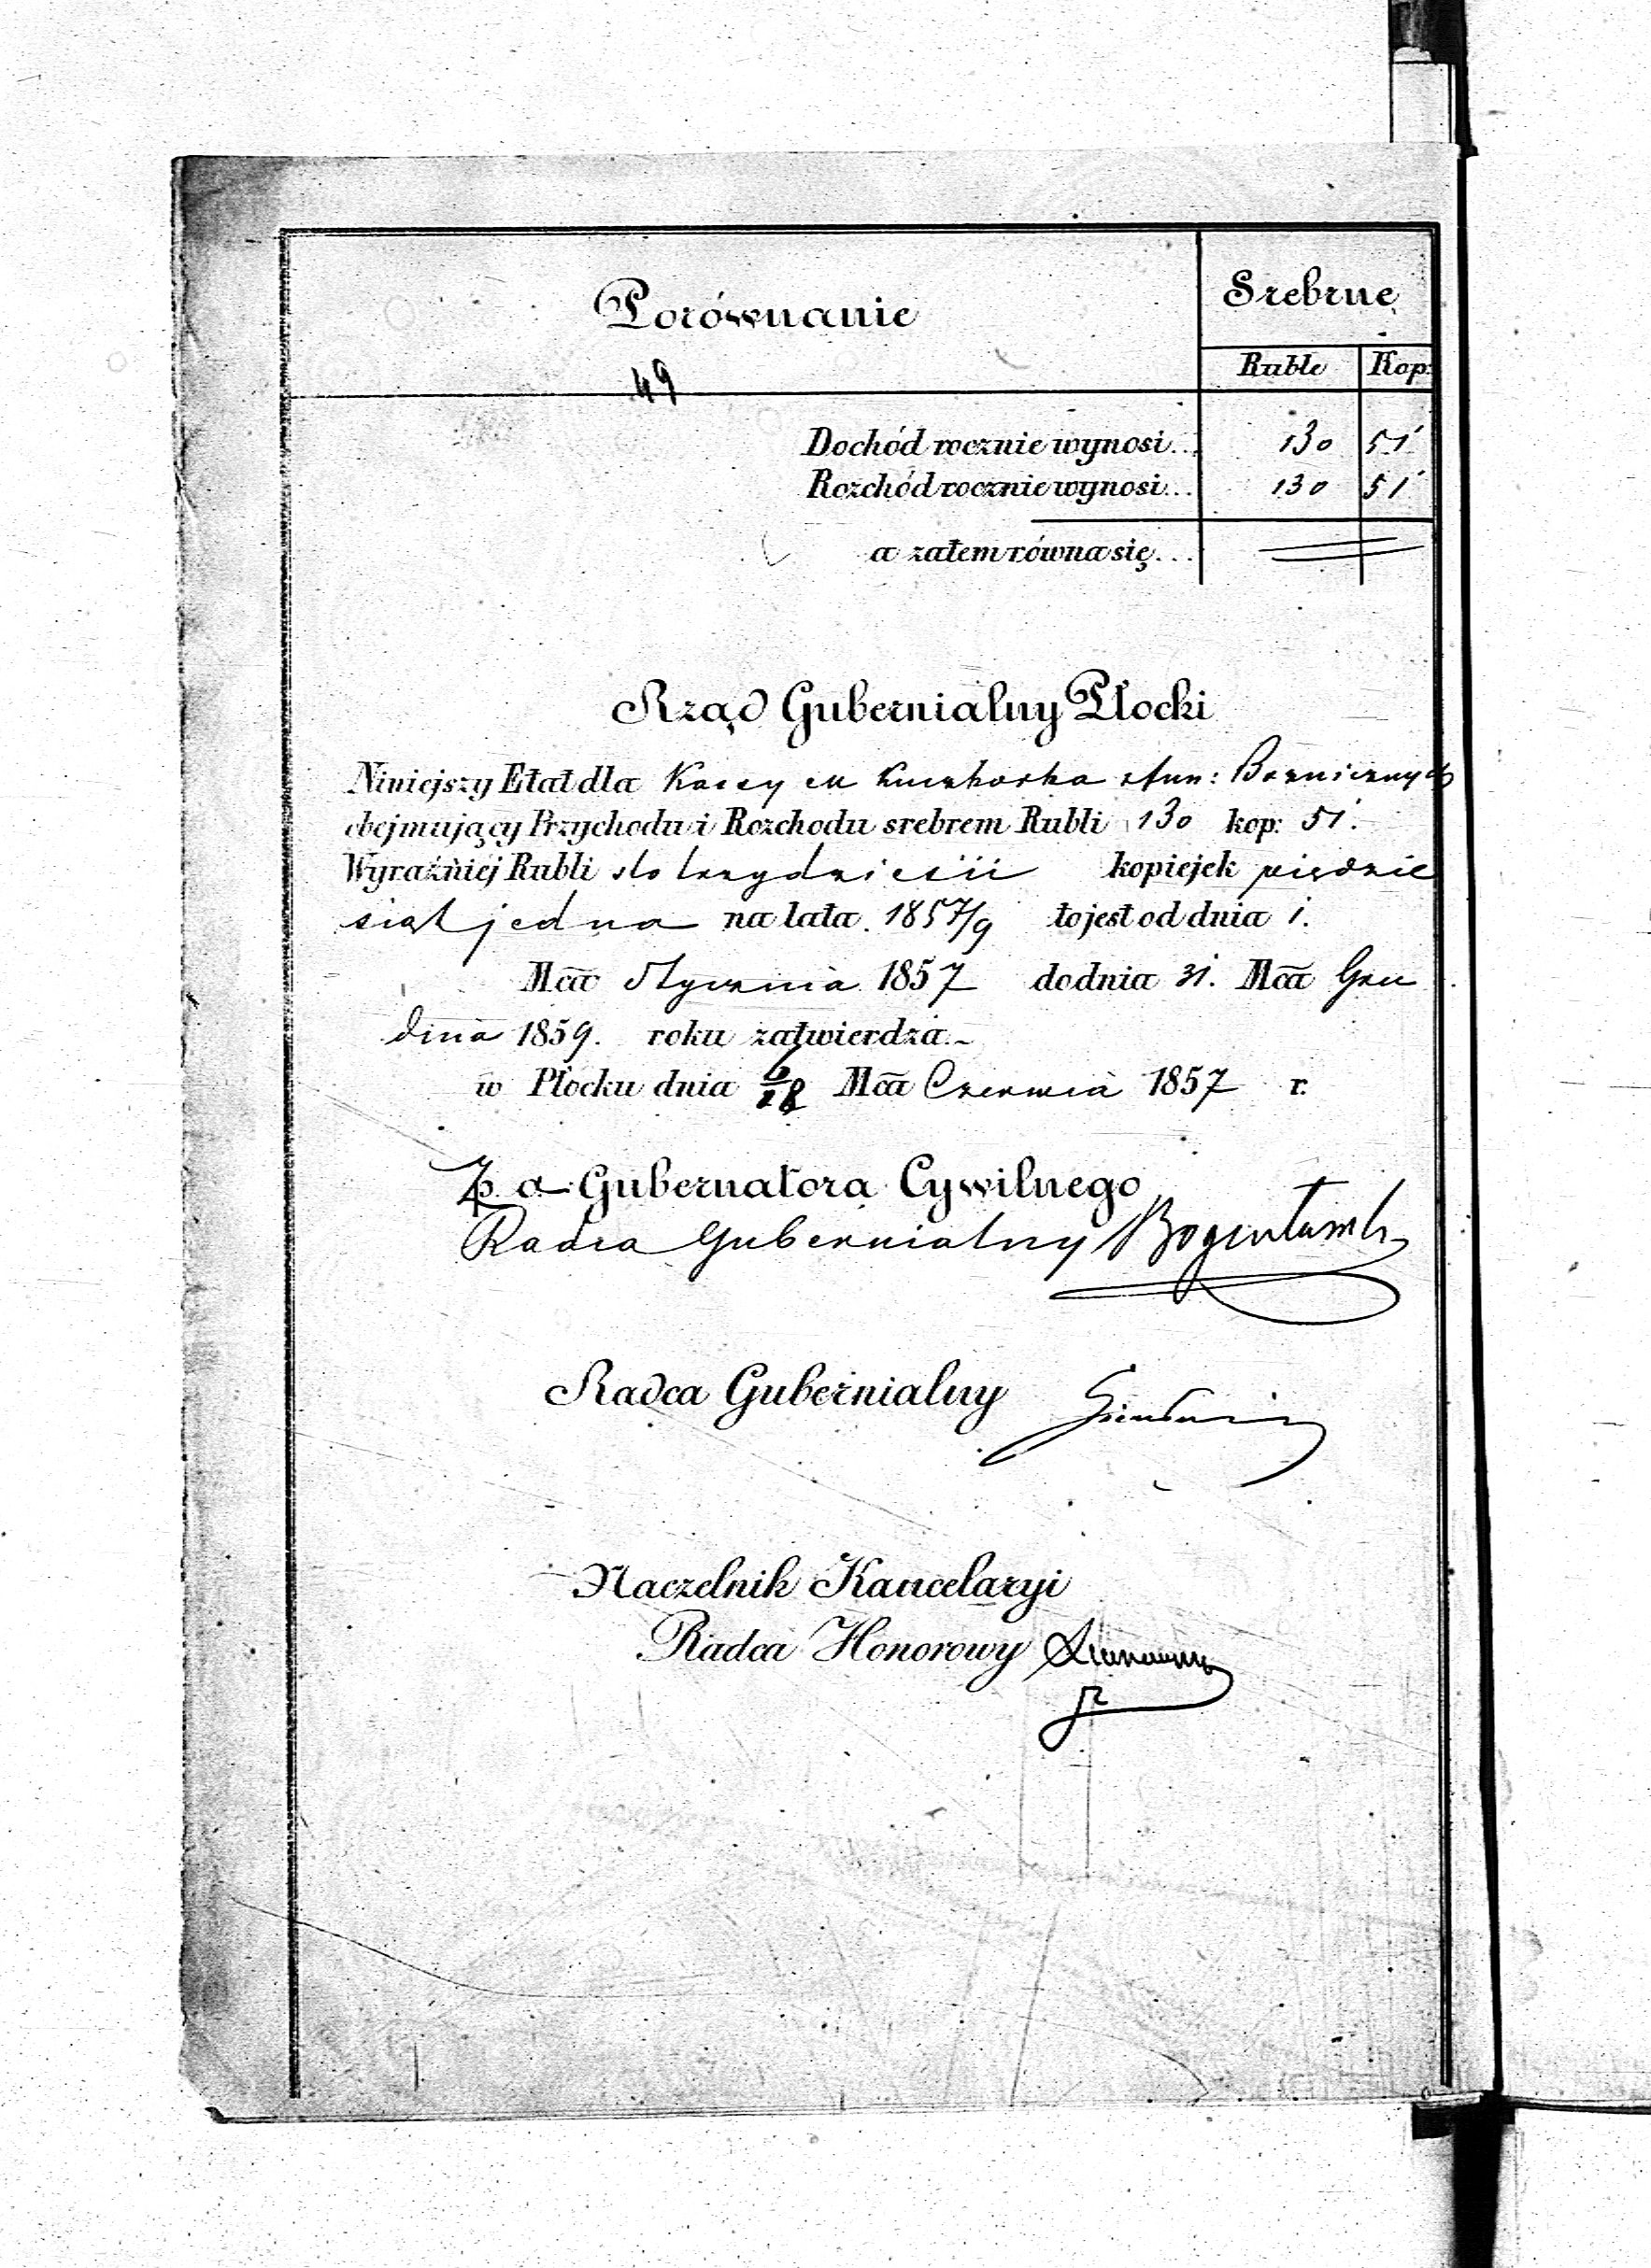 Porównanie
Srebrne
49
Ruble Kop:
Dochód rocznie wynosi... 130 51
Rozchód rocznie wynosi... 130 51
a zatem równa się...
Rząd Gubernialny Płocki
Niniejszy Etat dla Kassy m Kuczborka fun: Bożnicznych
obejmujący Przychodu i Rozchodu srebrem Rubli 130 kop: 51.
Wyraźniej Rubli sto trzydzieści kopiejek piędzie
siąt jedna na lata 1857/9 to jest od dnia 1.
Mca Stycznia 1857 do dnia 31. Mca Gru
dnia 1859. roku zatwierdza.~
w Płocku dnia 6/18 Mca Czerwca 1857 r.
Gubernatora Cywilnego
Radca Gubernialny
Radca Gubernialny
Naczelnik Kancelaryi
Radca Honorowy